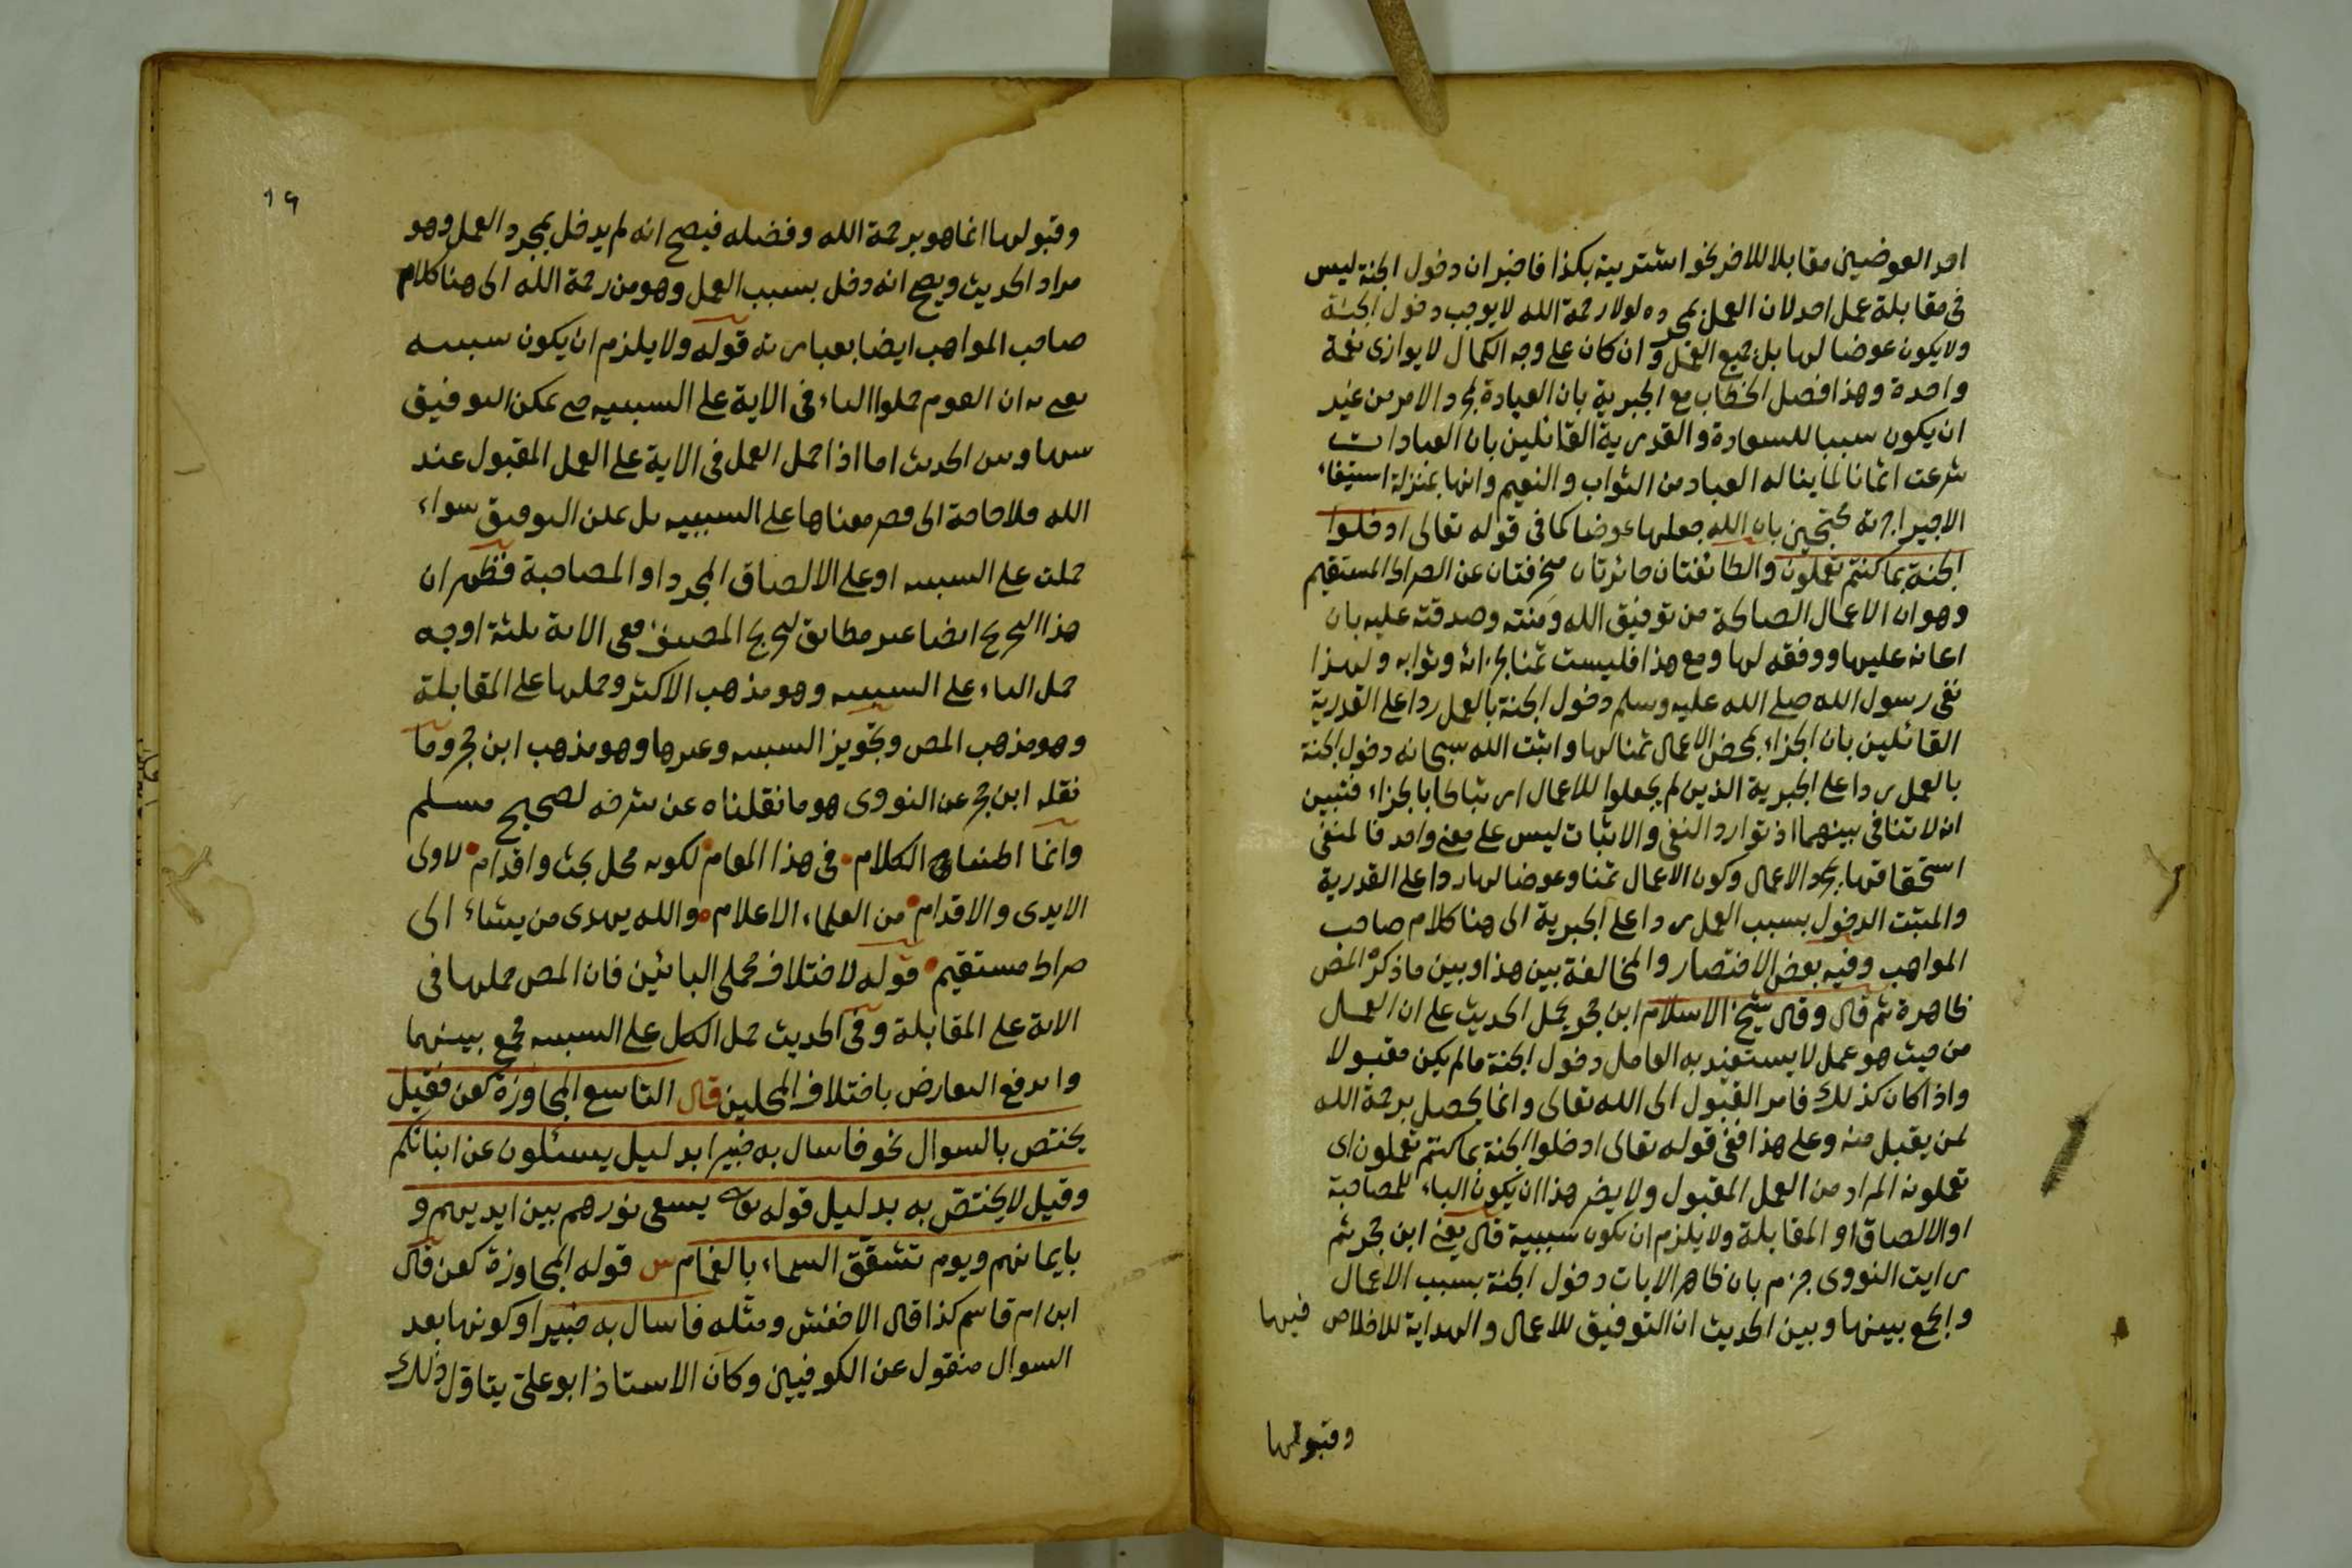 احد العوضين مقابلا للاخر نحو اشتريته بكذا فاخبر ان دخول الجنة ليس
في مقابلة عمل احد لان العمل بمجرده لولا رحمة الله لا يوجب دخول الجنة
ولا يكون عوضا لها بل جميع العمل وان كان على وجه الكمال لا يوازى نعمة
واحدة وهذا فصل الخطاب مع الجبرية بان العبادة لمجرد الامر من غير
ان يكون سببا للسعادة والقدرية القائلين بان العبادات
شرعت اثمانا لما يناله العباد من الثواب والنعيم وانها بمنزلة استيفاء
الاجير اجرته محتجين بان الله جعلها عوضا كما في قوله تعالى ادخلوا
الجنة بما كنتم تعملون والطائفتان حائرتان منحرفتان عن الصراط المستقيم
وهو ان الاعمال الصالحة من توفيق الله ومنته وصدقته عليه بان
اعانه عليها ووفقه لها ومع هذا فليست ثمنا لجزائه وثوابه ولهذا
نفى رسول الله صلى الله عليه وسلم دخول الجنة بالعمل ردا على القدرية
القائلين بان الجزاء بمحض الاعمال ثمنا لها واثبت الله سبحانه دخول الجنة
بالعمل ردا على الجبرية الذين لم يجعلوا للاعمال ارتباطا بالجزاء فتبين
انه لا تنافى بينهما اذ توارد النفى والاثبات ليس على معنى واحد فالمنفى
استحقاقها بمجرد الاعمال وكون الاعمال ثمنا وعوضا لها ردا على القدرية
والمثبت الدخول بسبب العمل ردا على الجبرية الى هنا كلام صاحب
المواهب وفيه بعض الاختصار والمخالفة بين هذا وبين ما ذكره المص
ظاهرة ثم قال وقال شيخ الاسلام ابن حجر يحمل الحديث على ان العمل
من حيث هو عمل لا يستفيد به العامل دخول الجنة ما لم يكن مقبولا
واذا كان كذلك فامر القبول الى الله تعالى وانما يحصل برحمة الله
لمن يقبل منه وعلى هذا ففى قوله تعالى ادخلوا الجنة بما كنتم تعملون اى
تعملونه المراد من العمل المقبول ولا يضر هذا ان يكون الباء للمصاحبة
او الالصاق او المقابلة ولا يلزم ان تكون سببية قال يعنى ابن حجر ثم
رايت النووى جزم بان ظاهر الايات دخول الجنة بسبب الاعمال
والجمع بينها وبين الحديث ان التوفيق للاعمال والهداية للاخلاص فيها
وقبولها
١٩
وقبولها انما هو برحمة الله وفضله فيصح انه لم يدخل بمجرد العمل وهو
مراد الحديث ويصح انه دخل بسبب العمل وهو من رحمة الله الى هنا كلام
صاحب المواهب ايضا بعبارته قوله ولا يلزم ان يكون سببيه
يعنى به ان القوم حملوا الباء فى الاية على السببيه حتى يمكن التوفيق
بينها وبين الحديث اما اذا حمل العمل فى الاية على العمل المقبول عند
الله فلا حاجة الى قصر معناها على السببيه بل يمكن التوفيق سواء
حملت على السببيه او على الالصاق المجرد او المصاحبة فظهر ان
هذا التخريج ايضا غير مطابق لتخريج المصنف ففى الاية ثلثة اوجه
حمل الباء على السببيه وهو مذهب الاكثر وحملها على المقابلة
وهو مذهب المص وتجويز السببيه وغيرها وهو مذهب ابن حجر وما
نقله ابن حجر عن النووى هو ما نقلناه عن شرحه لصحيح مسلم
وانما اطنبنا الكلام فى هذا المقام لكونه محل بحث واقدام لاولى
الايدى والاقدام من العلماء الاعلام والله يهدى من يشاء الى
صراط مستقيم قوله لاختلاف محملى البائين فان المص حملها فى
الاية على المقابلة وفى الحديث حمل الكل على السببيه فجمع بينهما
واندفع التعارض باختلاف المحملين قال التاسع المجاوزة كعن فقيل
يختص بالسوال نحو فاسال به خبيرا بدليل يسئلون عن انبائكم
وقيل لا يختص به بدليل قوله تعالى يسعى نورهم بين ايديهم و
بايمانهم ويوم تشقق السماء بالغمام س قوله المجاوزة كعن قال
ابن ام قاسم كذا قال الاخفش ومثله فاسال به خبيرا وكونها بعد
السوال منقول عن الكوفيين وكان الاستاذ ابو على يتاول ذلك